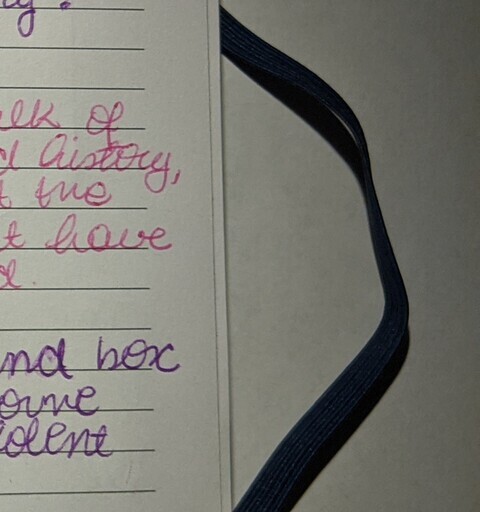 y.
elk of
d history,
t the
t have
d.
and box
ourne
olent